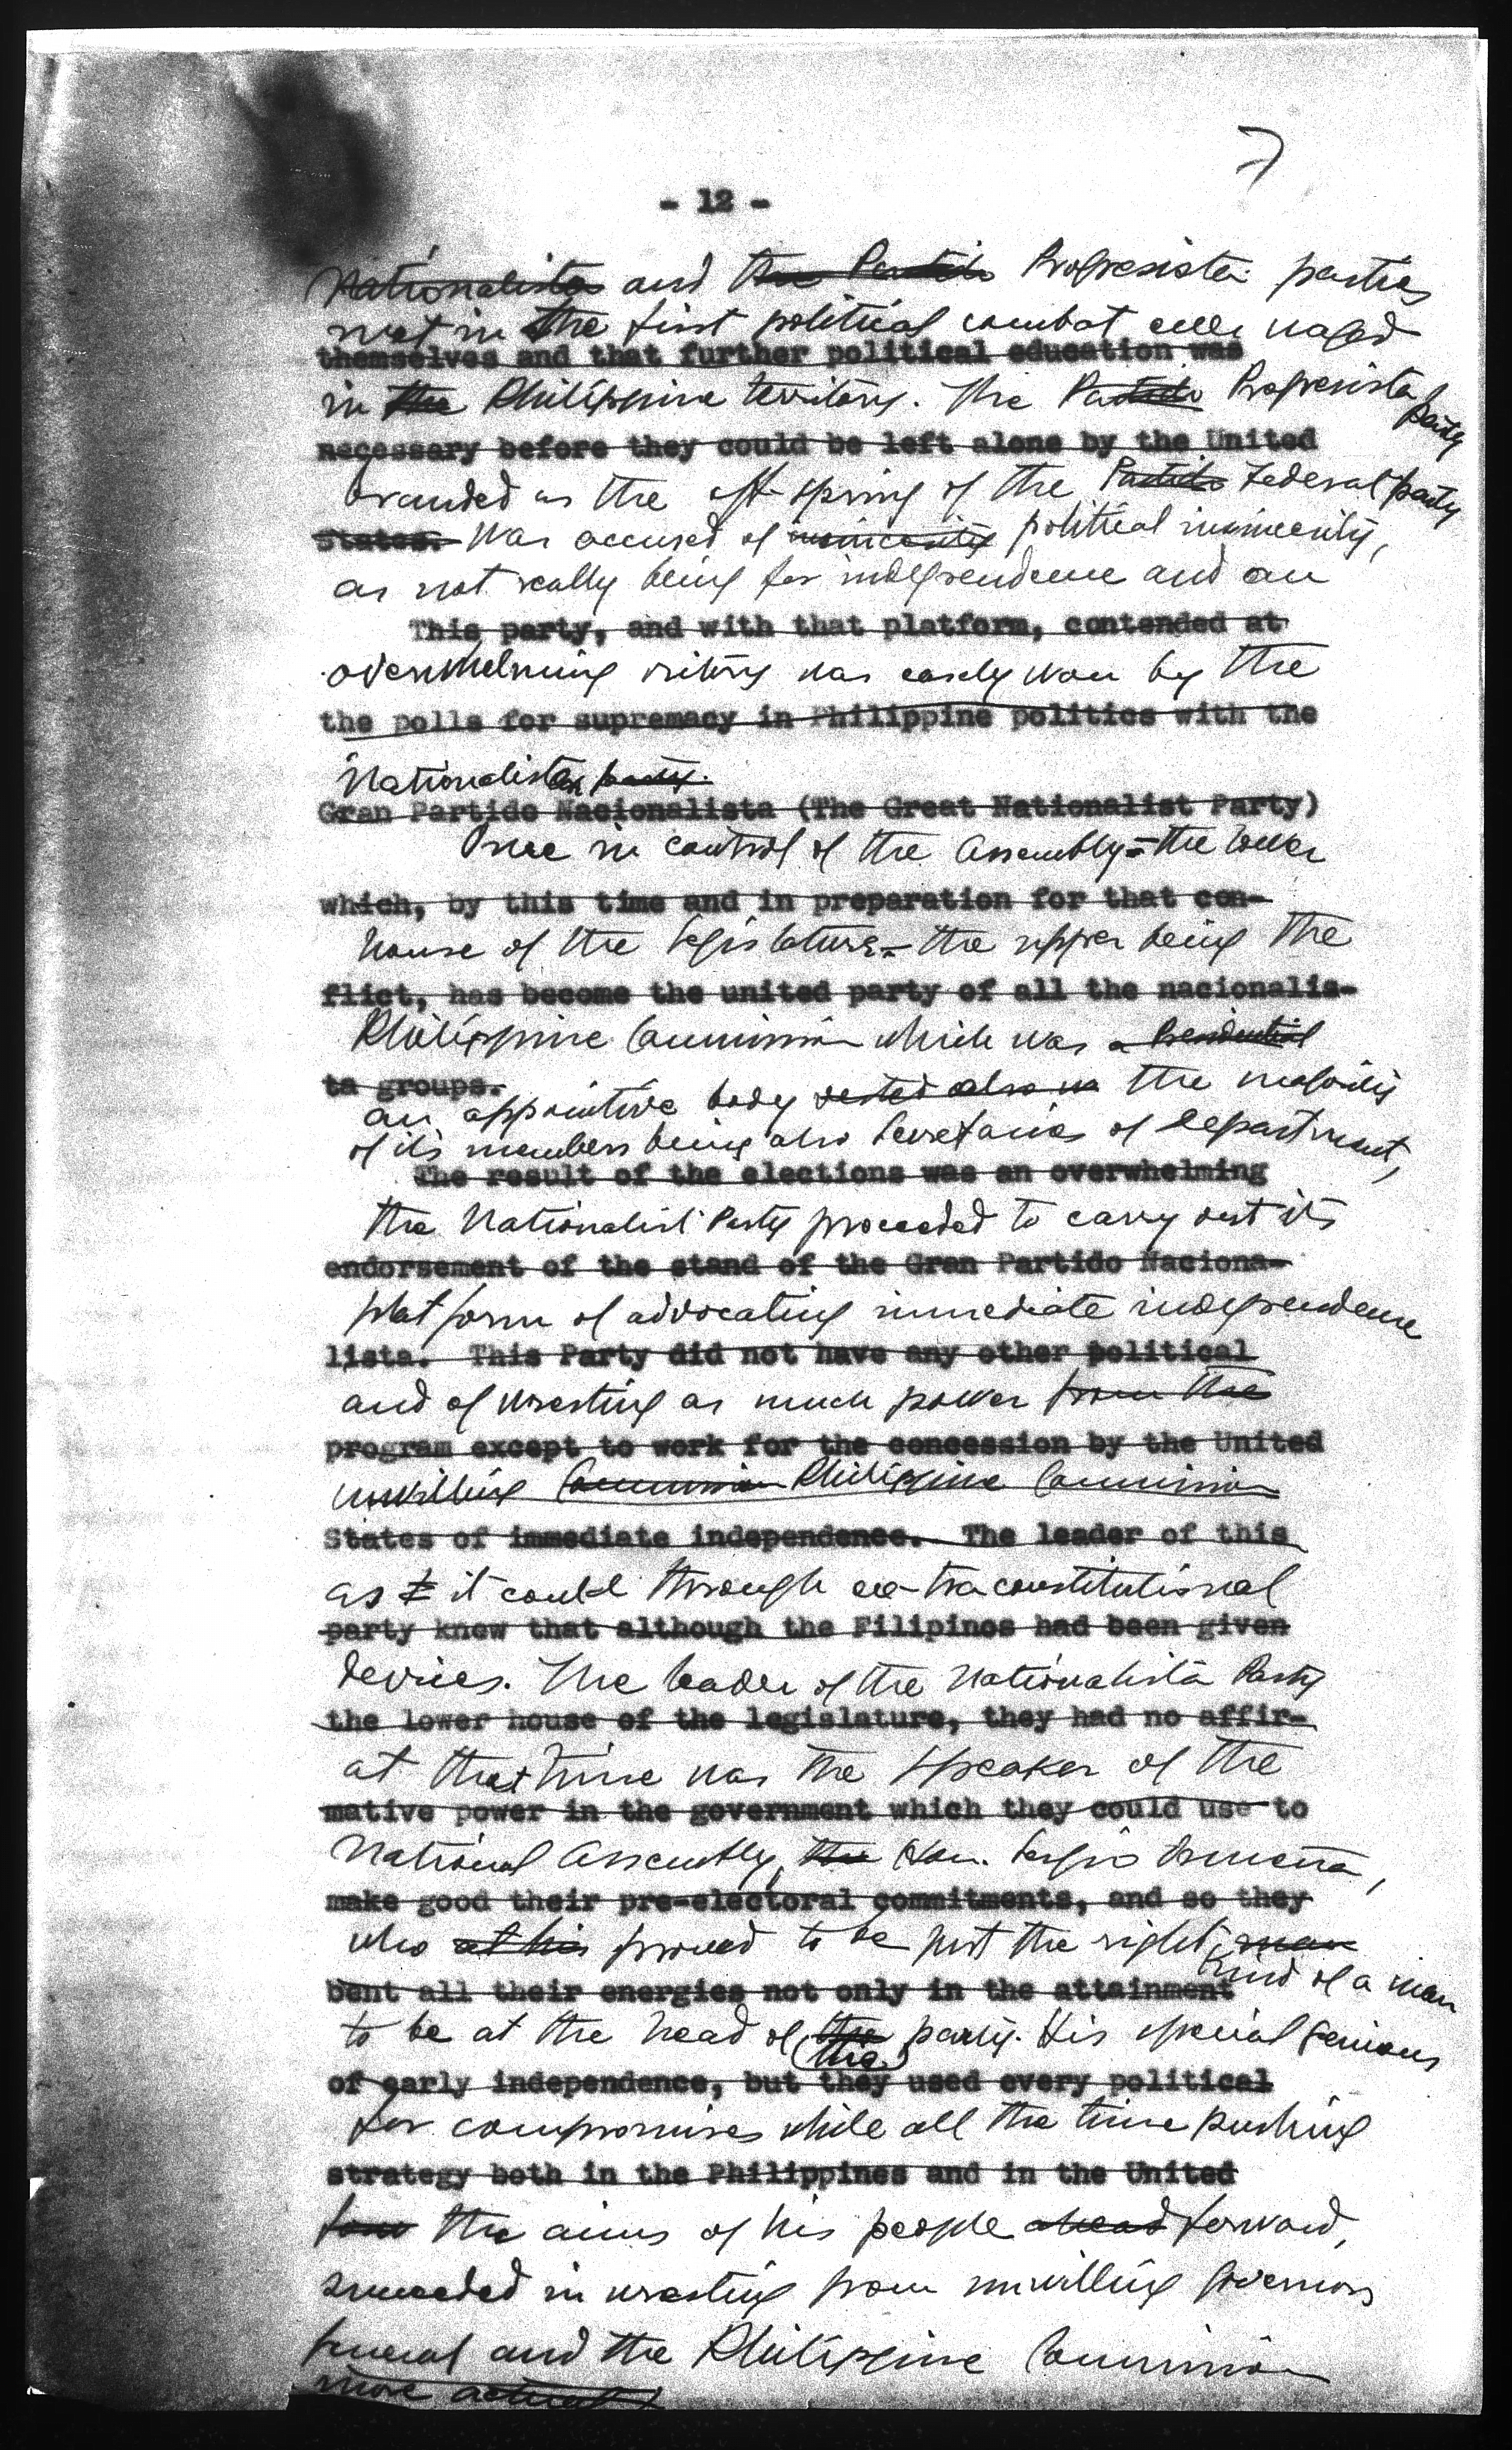 7
- 12 -
Nationalista and the Partido Progresista parties
met in the first political combat ever waged
themselves and that further political education was
in the Philippine territory. The Partido Progresista party
necessary before they could be left alone by the United
branded as the off-spring of the Partido Federal party
States. was accused of insincerity political insincerity,
as not really being for independence and an
This party, and with that platform, contended at
overwhelming victory was easily won by the
the polls for supremacy in Philippine politics with the
Nationalistas party.
Gran Partido Nacionalista (The Great Nationalist Party)
Once in control of the Assembly - the lower
which, by this time and in preparation for that con-
house of the legislature - the upper being the
flict, has become the united party of all the nacionalis-
Philippine Commission which was a Presidential
ta groups.
an appointive body vested also in the majority
of its members being also Secretaries of Department,
The result of the elections was an overwhelming
the Nationalist Party proceeded to carry out its
endorsement of the stand of the Gran Partido Naciona-
platform of advocating immediate independence
lista. This Party did not have any other political
and of wresting as much power from the
program except to work for the concession by the United
unwilling Commission Philippine Commission
States of immediate independence. The leader of this
as it could through extraconstitutional
party knew that although the Filipinos had been given
devices. The leader of the Nationalista Party
the lower house of the legislature, they had no affir-
at that time was the Speaker of the
mative power in the government which they could use to
National Assembly, the Hon. Sergio Osmeña,
make good their pre-electoral commitments, and so they
who at his proved to be just the right man
kind of a man
bent all their energies not only in the attainment
to be at the head of the party. His special genious
the
of early independence, but they used every political
for compromises while all the time pushing
strategy both in the Philippines and in the United
the aims of his people ahead forward,
succeeded in wresting from unwilling governors
general and the Philippine Commission
more actual